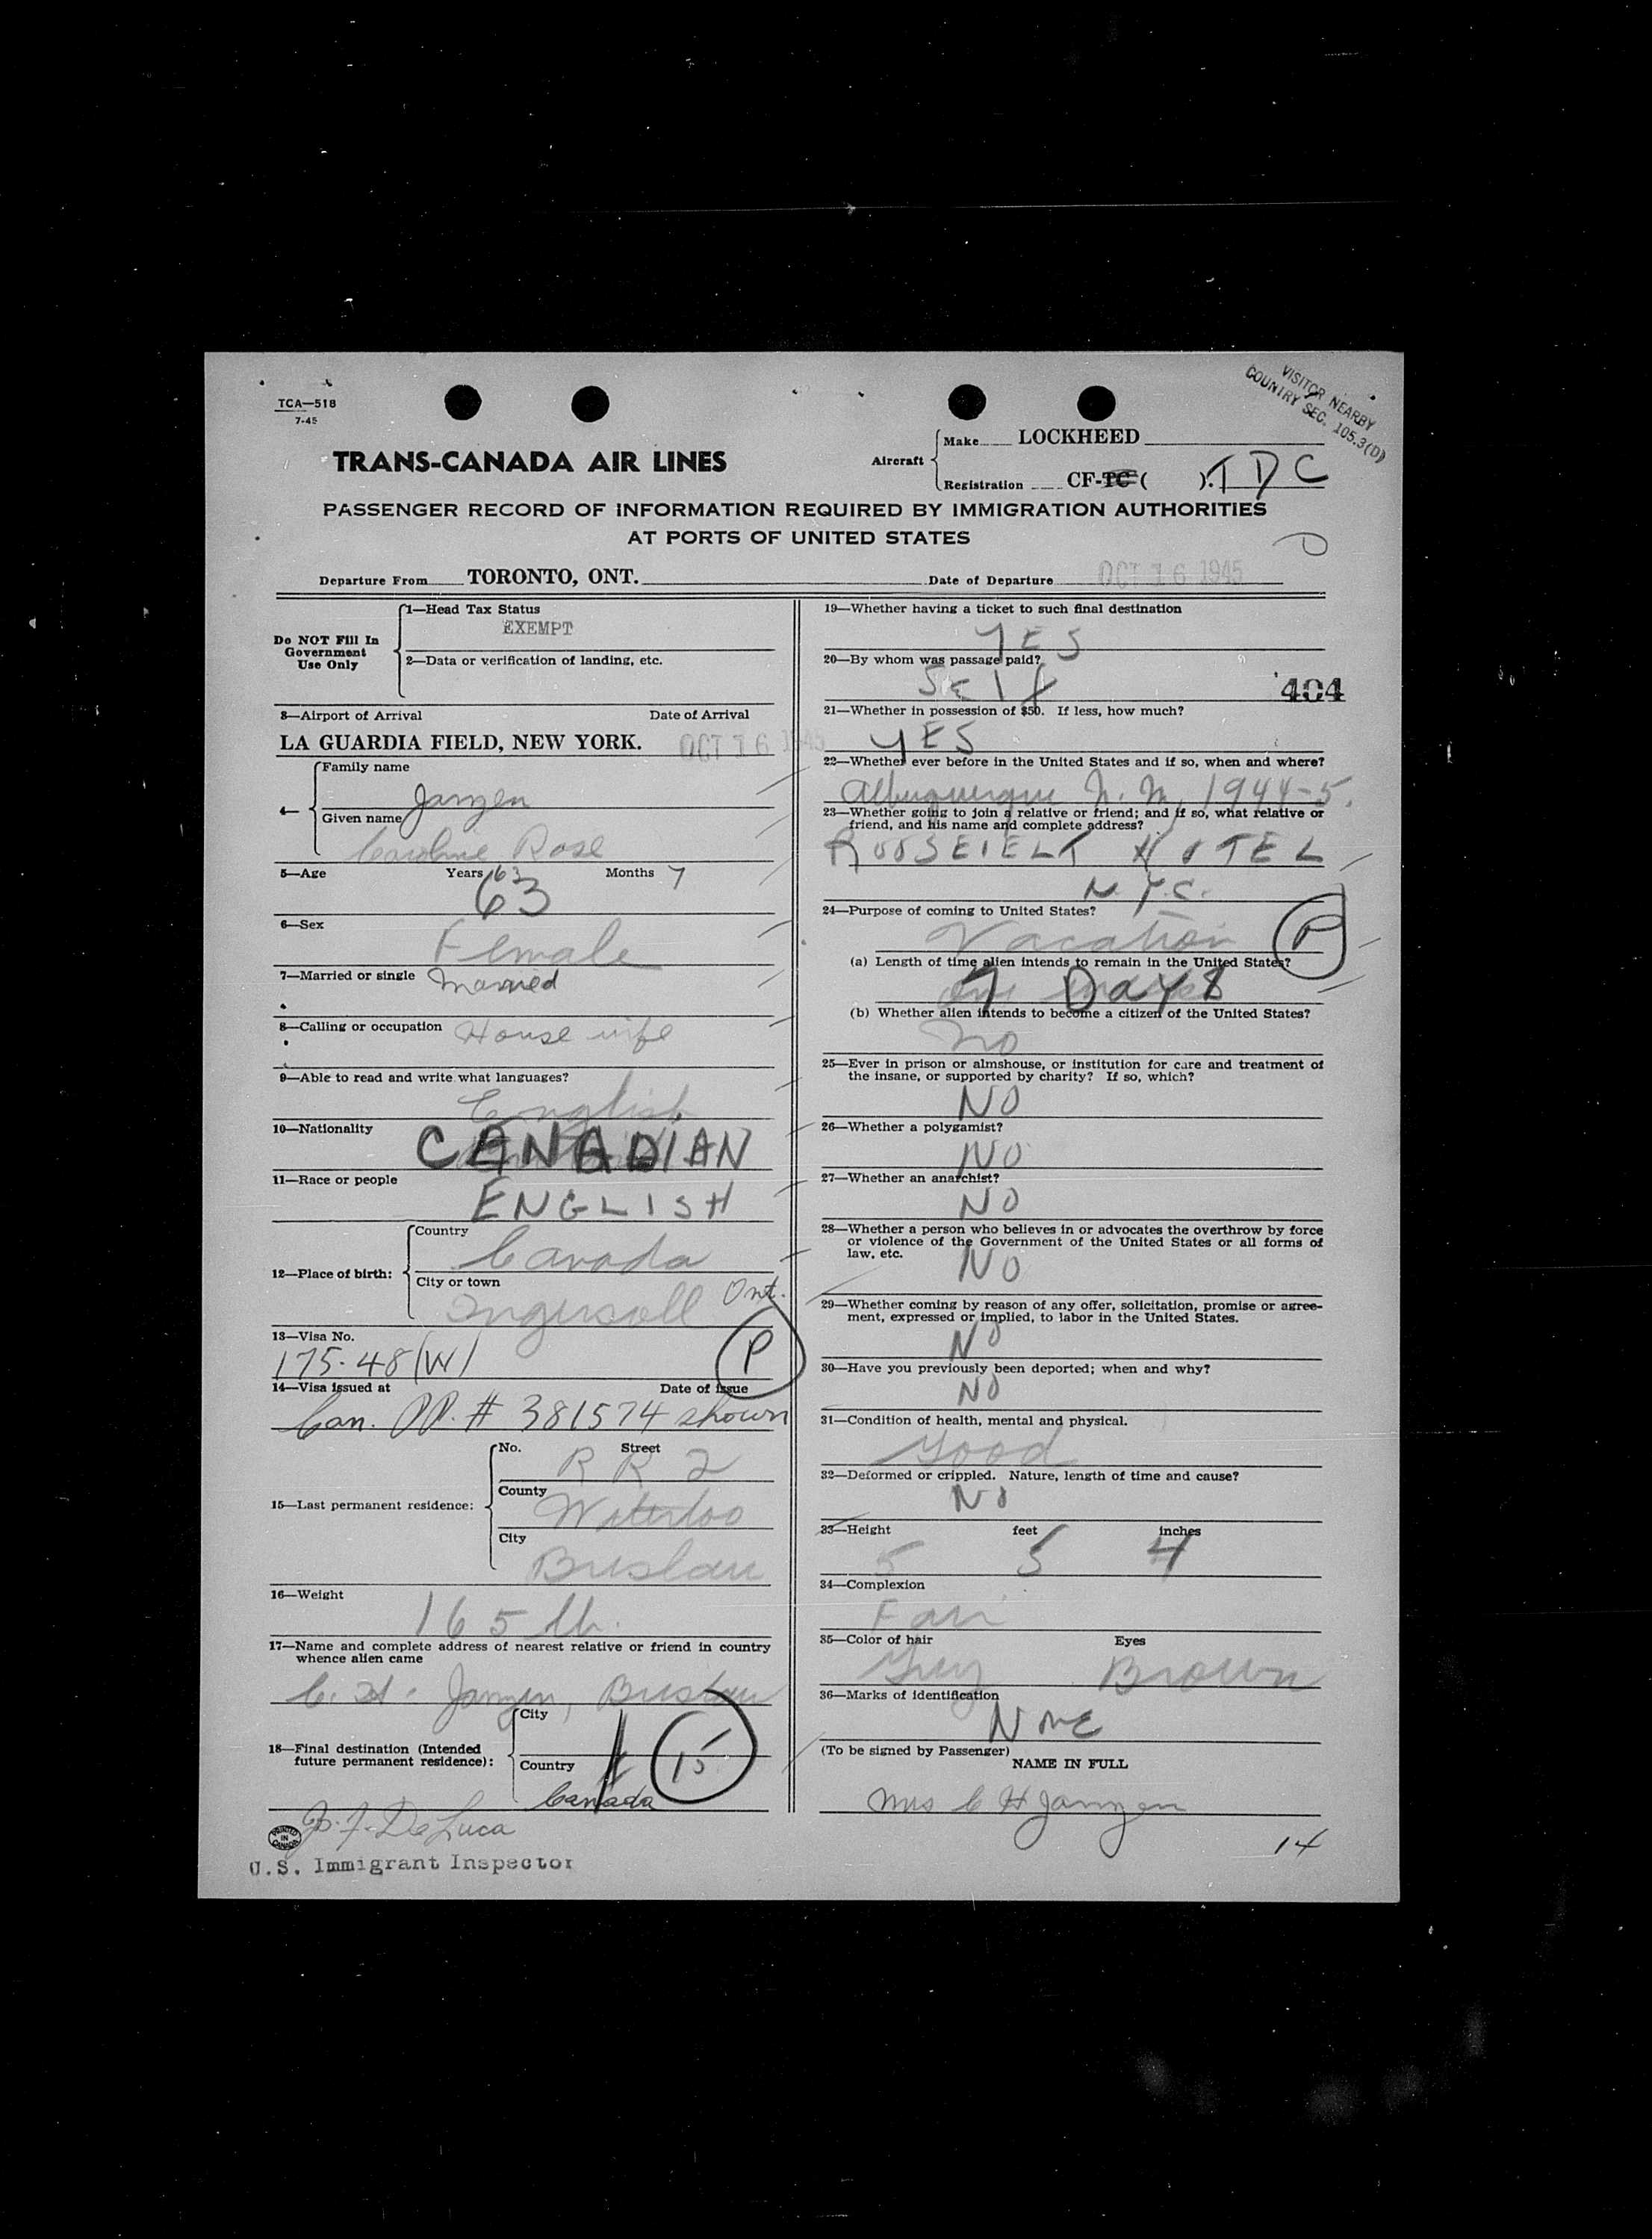 VISITOR NEARBY
COUNTRY SEC. 105.3(D)
TCA—518
7-45
TRANS-CANADA AIR LINES
Aircraft
Make LOCKHEED
Registration CF-TC ( ). TDC
PASSENGER RECORD OF INFORMATION REQUIRED BY IMMIGRATION AUTHORITIES
AT PORTS OF UNITED STATES
D
Departure From TORONTO, ONT. Date of Departure OCT 16 1945
Do NOT Fill In
Government
Use Only
1—Head Tax Status
EXEMPT
2—Data or verification of landing, etc.
3—Airport of Arrival Date of Arrival
LA GUARDIA FIELD, NEW YORK. OCT 16 1945
4—
Family name
Janzen
Given name
Caroline Rose
5—Age Years 63 Months 7
63
6—Sex
Female
7—Married or single Married
8—Calling or occupation House wife
9—Able to read and write what languages?
English
10—Nationality
CANADIAN
11—Race or people
ENGLISH
12—Place of birth:
Country
Canada
City or town
Ingersoll Ont.
13—Visa No.
175-48(W) P
14—Visa issued at Date of issue
Can. PP. # 381574 shown
15—Last permanent residence:
No. Street
R R 2
County
Waterloo
City
Breslau
16—Weight
165 lb.
17—Name and complete address of nearest relative or friend in country
whence alien came
C. H. Janzen, Breslau
18—Final destination (Intended
future permanent residence):
City
15
Country
Canada
J. F. De Luca
PRINTED
IN
CANADA
U.S. Immigrant Inspector
19—Whether having a ticket to such final destination
YES
20—By whom was passage paid?
Self
404
21—Whether in possession of $50. If less, how much?
YES
22—Whether ever before in the United States and if so, when and where?
Albuquerque N. M. 1944-5.
23—Whether going to join a relative or friend; and if so, what relative or
friend, and his name and complete address?
ROOSEIELT HOTEL
N.Y.C.
24—Purpose of coming to United States?
Vacation P
(a) Length of time alien intends to remain in the United States?
7 DAYS
(b) Whether alien intends to become a citizen of the United States?
No
25—Ever in prison or almshouse, or institution for care and treatment of
the insane, or supported by charity? If so, which?
NO
26—Whether a polygamist?
NO
27—Whether an anarchist?
NO
28—Whether a person who believes in or advocates the overthrow by force
or violence of the Government of the United States or all forms of
law, etc.
NO
29—Whether coming by reason of any offer, solicitation, promise or agree-
ment, expressed or implied, to labor in the United States.
NO
30—Have you previously been deported; when and why?
NO
31—Condition of health, mental and physical.
Good
32—Deformed or crippled. Nature, length of time and cause?
NO
33—Height feet inches
5 5 4
34—Complexion
Fair
35—Color of hair Eyes
Grey Brown
36—Marks of identification
NONE
(To be signed by Passenger)
NAME IN FULL
Mrs C H Janzen
14